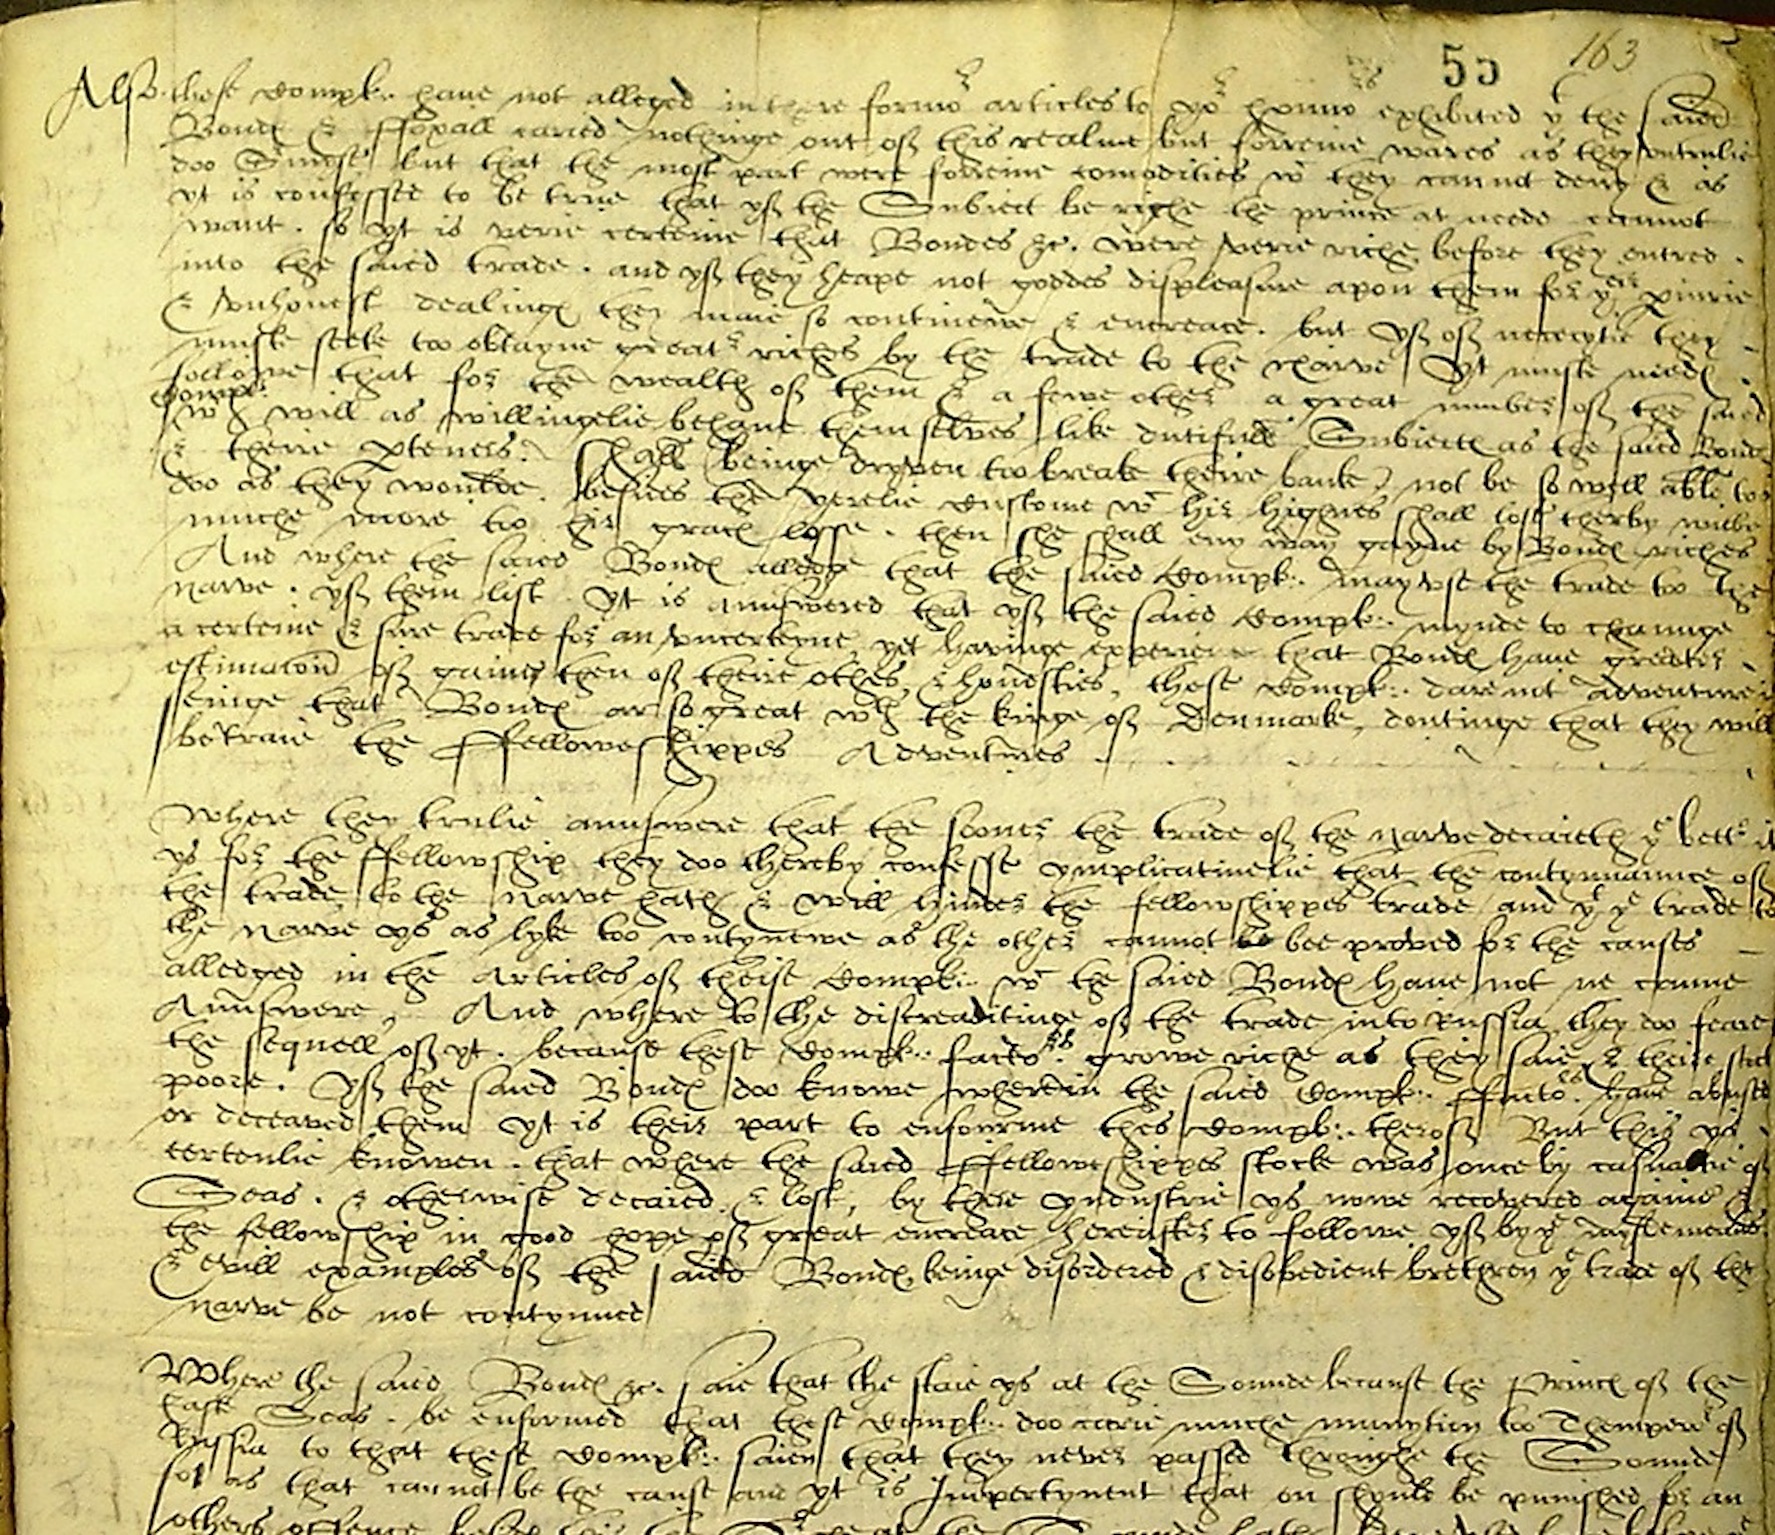 55 163
Also these Compl: have not alleged in there former articles to yor honno exhibited yt the saied
Bondes & ffoxall caried nothinge out of this realme but forreine wares as they untrulie
doo Surmise but that the most part were forreine comodities wch they cannot deny & as
yt is confessed to be true that yf the Subiect be riche the prince at neede cannot
want. so yt is verie certeine that Bondes &c. were verie riche before they entred
into the saied trade. and yf they heape not goddes displeasure apon them for yeir
& unhonest dealinges they maie so contineiue & encreace. but yf of nececytie they
muste seeke too obtayne greatr riches by the trade to the Narve yt muste needes
followe that for the wealth of them & a fewe other a great number of the saied
Compl:
wch will as willingelie behave themselves like dutifull Subiectes as the saied Bondes
& theire pteners. shall beinge dryven too breake theire banke not be so well able too
doo as they woulde. besides the yerelie custome wch hir highnes shall lose therby wilbe
muche more too hir graces losse. then she shall eny way gayne by Bondes riches
And where the saied Bondes alledge that the saied Compl: may use the trade too the
Narve. yf them list yt is aunswered that yf the saied Compl: mynde to chaunge
a certeine & sure trade for an uncerteyne, yet havinge experience that Bondes have greater
estimacon of gaines then of theire othes & honesties, these Compl: dare not adventure it
seinge that Bondes ar so great wth the kinge of Denmarke, doutinge that they will
betraie the ffelloweshippes Adventures.
Where they trulie aunswere that the sooner the trade of the Narve decaieth ye bettr it
ys for the ffellowship they doo thereby confesse ymplicativelie that the contynuaunce of
the trade to the Narve hath & will hinder the fellowshippes trade and yt ye trade to
the Narve ys as lyke too contynewe as the other cannot be bee proved for the causes
alledged in the Articles of theise Compl: wch the saied Bondes have not ne canne
Aunswere, And where to the discreaditinge of the trade into Russia they doo feare
the sequell of yt. because these Compl: factors growe riche as they saie & theire stock
poore. yf the saied Bondes doo knowe wherein the saied Compl: ffactors have abused
or deceaved them yt is their part to enfourme thes Compl: therof But this ys
certenlie knowen. that where the saied ffelloweshippes stocke was once by casualtie of
Seas. & otherwise decaied & lost, by there yndustrie ys nowe recovered againe &
the fellowship in good hope of great encreace hereafter to followe yf by ye
& evill examples of the saied Bondes, beinge disordered & disobedient brethren ye trade of the
Narve be not contynued
Where the saied Bondes &c. saie that the staie ys at the Sounde because the Princes of the
East Seas. be enformed that these Compl: doo carie muche munytion too Themperor of
Russia to that these Compl: saien that they never passed throughe the Sounde
so as that cannot be the cause and yt is Impertynent that on shoulde be punished for an
others offence